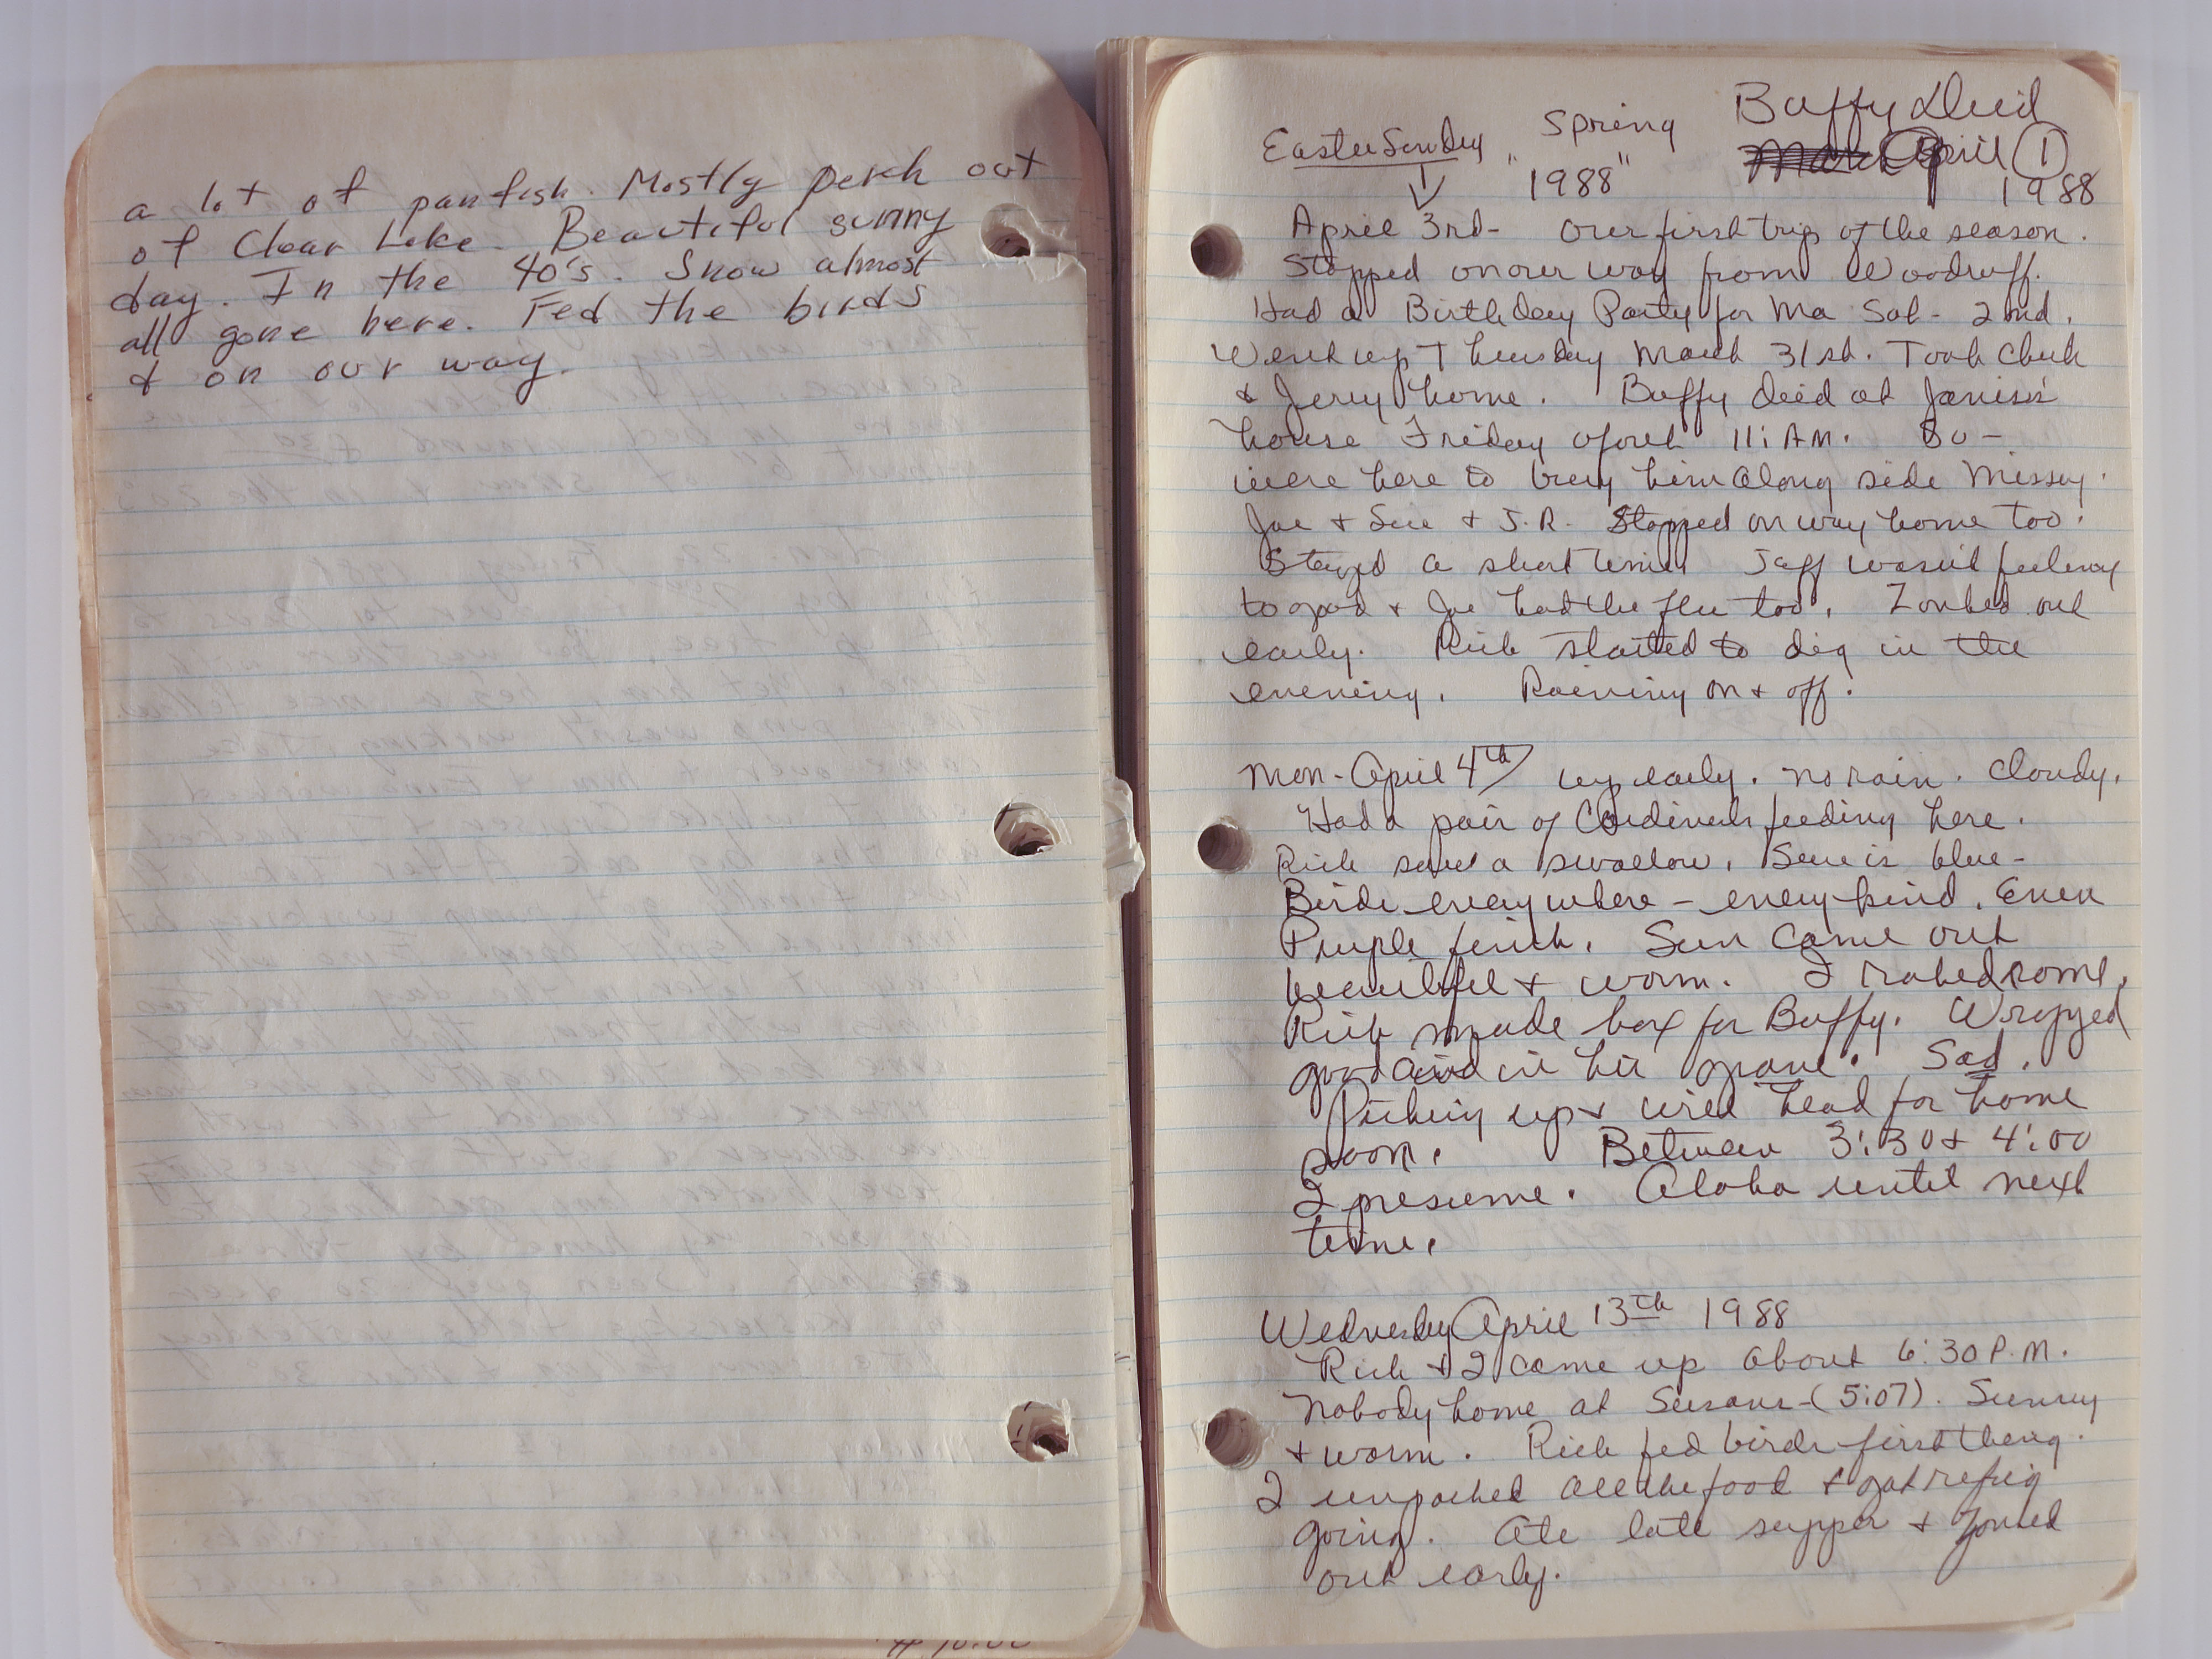 a lot of panfish. Mostly perch out
of Clear Lake. Beautiful sunny
day. In the 40's. Snow almost
all gone here. Fed the birds
& on our way.
Buffy Died
April 1
1988
Easter Sunday
Spring
"1988"
April 3rd- Our first trip of the season.
Stopped on our way from Woodruff.
Had a Birthday Party for Ma Sat- 2nd.
Went up Thursday March 31st. Took Chuck
& Jerey home. Buffy died at Janiss's
house Friday about 11: AM. So -
were here to bury him along side Missey.
Joe & Sue & J.R. Stopped on way home too.
Stayed a short time. Jeff wasn't feeling
to good & Joe had the flu too. Zonked out
early. Rich started to dig in the
evening. Raining on & off.
Mon- April 4th up early. no rain. Cloudy.
Had a pair of Cardinals feeding here.
Rich saw a swallow. Sue is blue-
Birds everywhere - every kind. Even
Purple finch. Sun came out
beautiful & warm. I raked some.
Rich made box for Buffy. Wrapped
good and in his grave. Sad.
Picking up & will head for home
soon. Between 3:30 & 4:00
I presume. Aloha until next
time.
Wednesday April 13th 1988
Rich & I came up about 6:30 P.M.
Nobody home at Susans-(5:07). Sunny
& warm. Rich fed birds first thing.
I unpacked all the food & got refrig
going. Ate late supper & Zonked
out early.